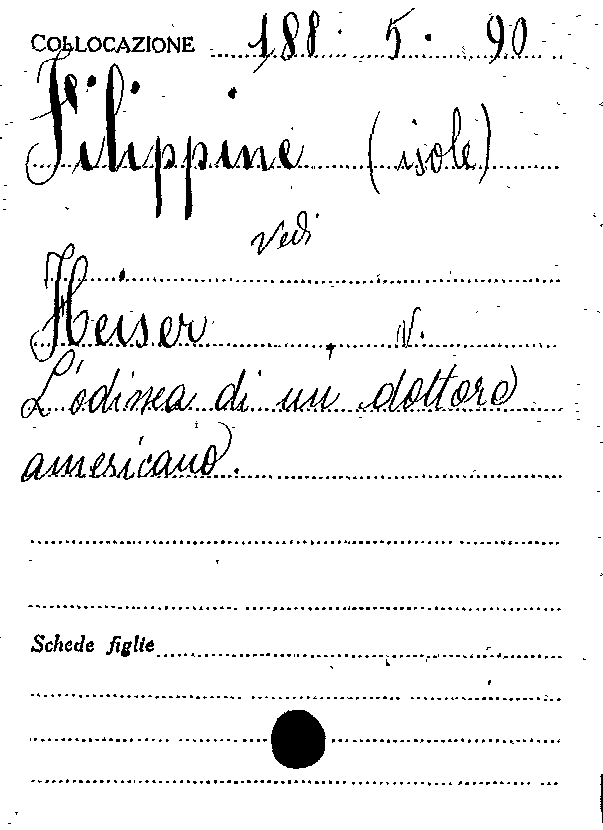 COLLOCAZIONE 188 · 5 · 90
Filippine (isole)
Vedi
Heiser , V.
L'odissea di un dottore
americano.
Schede figlie